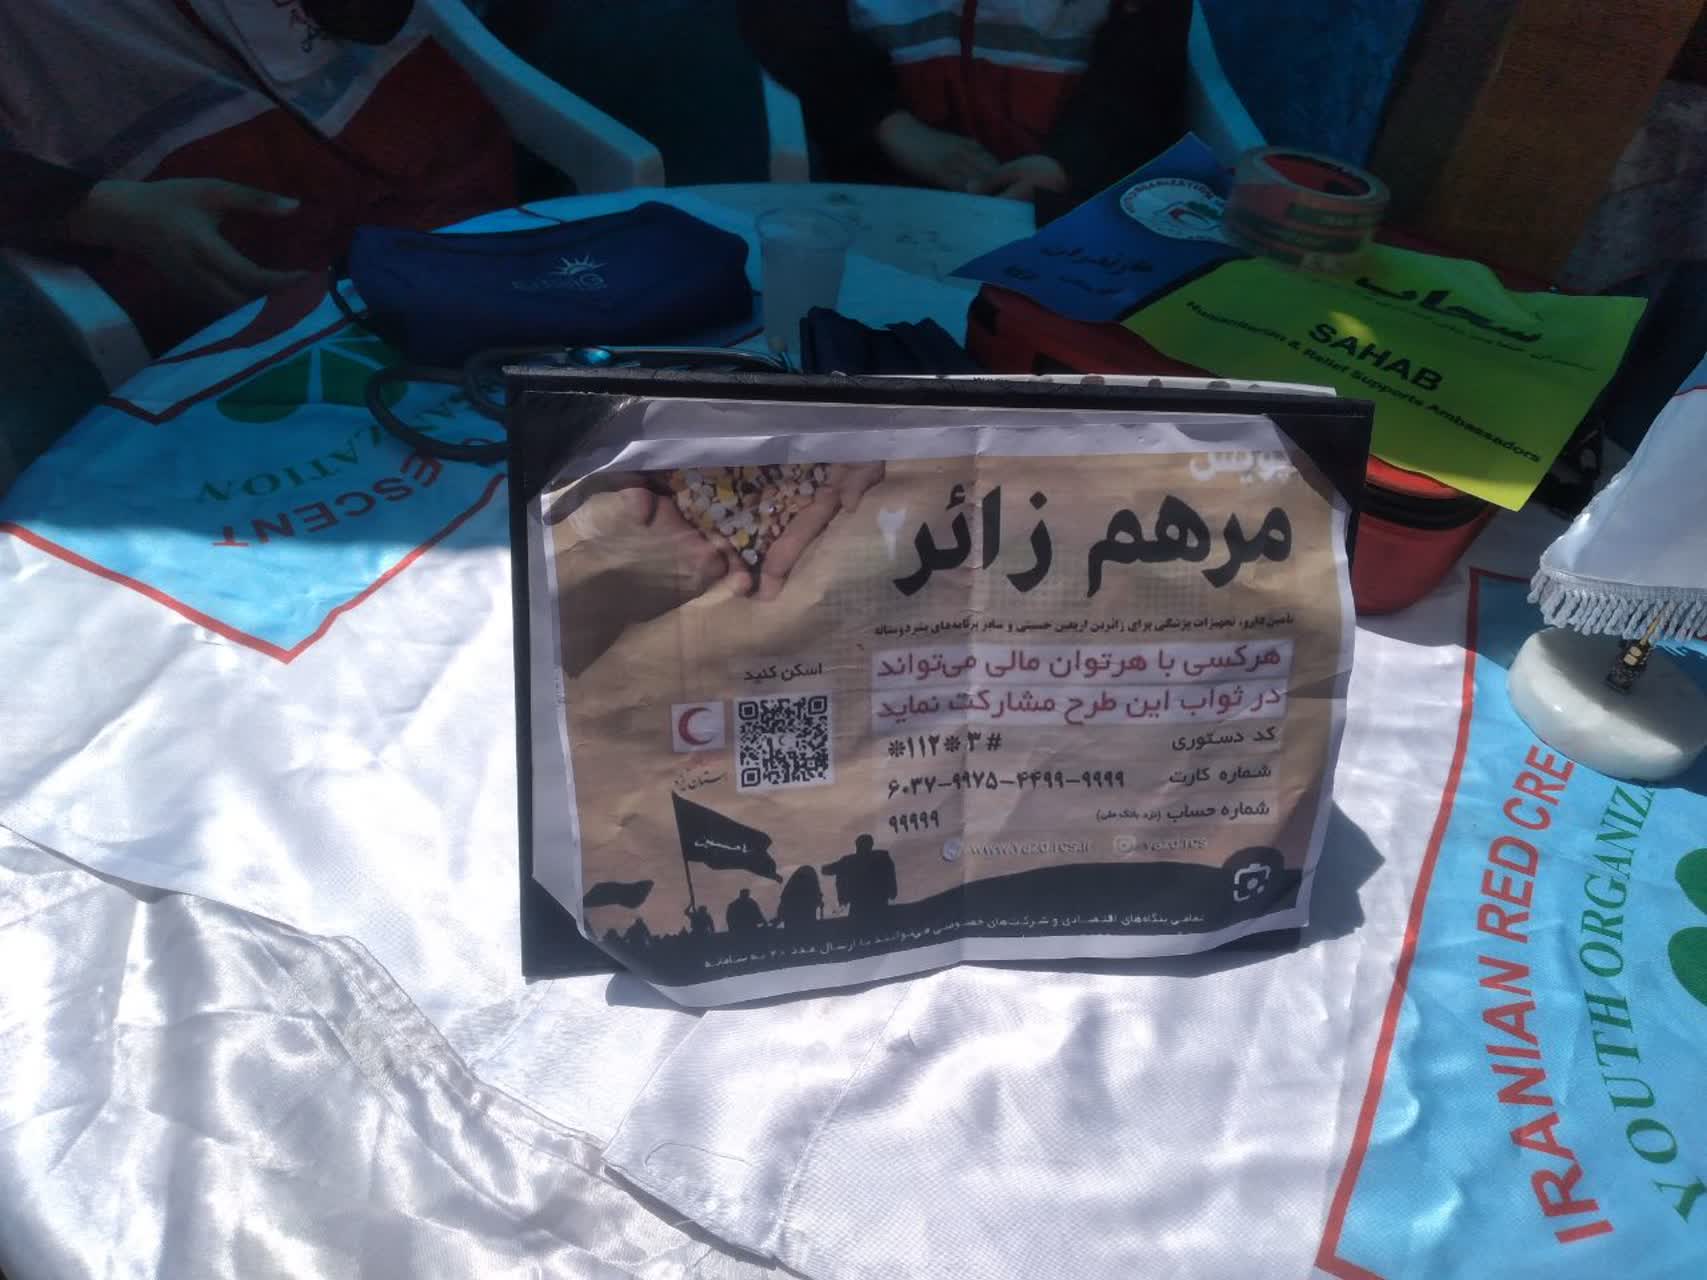 مازندران
سحاب
SAHAB
Humanitarian & Relief Supports Ambassadors
پویش
مرهم زائر ۲
تأمین دارو، تجهیزات پزشکی برای زائرین اربعین حسینی و سایر برنامه‌های بشردوستانه
هرکسی با هر توان مالی می‌تواند
در ثواب این طرح مشارکت نماید
اسکن کنید
کد دستوری *۱۱۲*۳#
شماره کارت ۶۰۳۷-۹۹۷۵-۴۴۹۹-۹۹۹۹
شماره حساب (نزد بانک ملی)
۹۹۹۹۹
استان یزد
www.yazd.rcs.ir yazd.rcs
تمامی بنگاه‌های اقتصادی و شرکت‌های خصوصی می‌توانند با ارسال عدد ۲۰ به سامانه
ESCENT
ANIZATION
IRANIAN RED CRE
YOUTH ORGANIZA